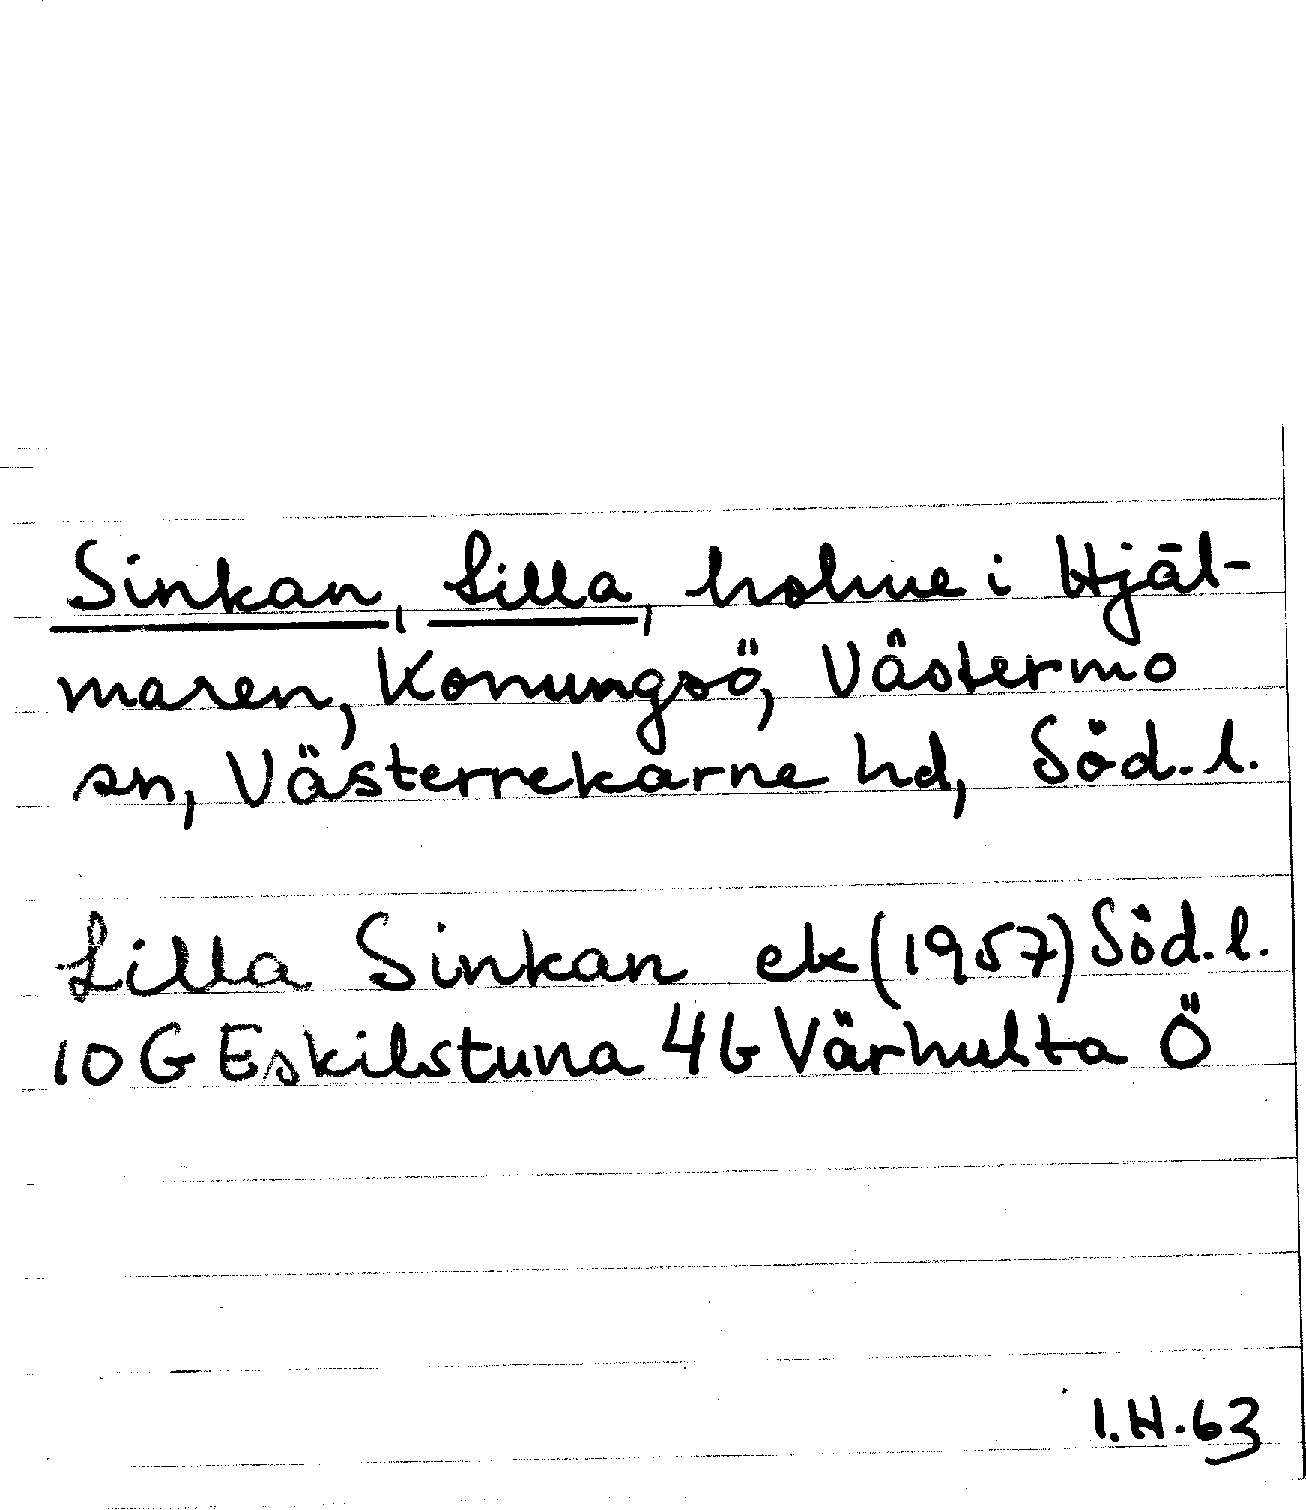 Sinkan, Lilla, holme i Hjäl-
maren, Konungsö, Västermo
sn, Västerrekarne hd, Söd. l.
Lilla Sinkan ek (1957) Söd. l.
10 G Eskilstuna 4b Värhulta Ö
I.H.63